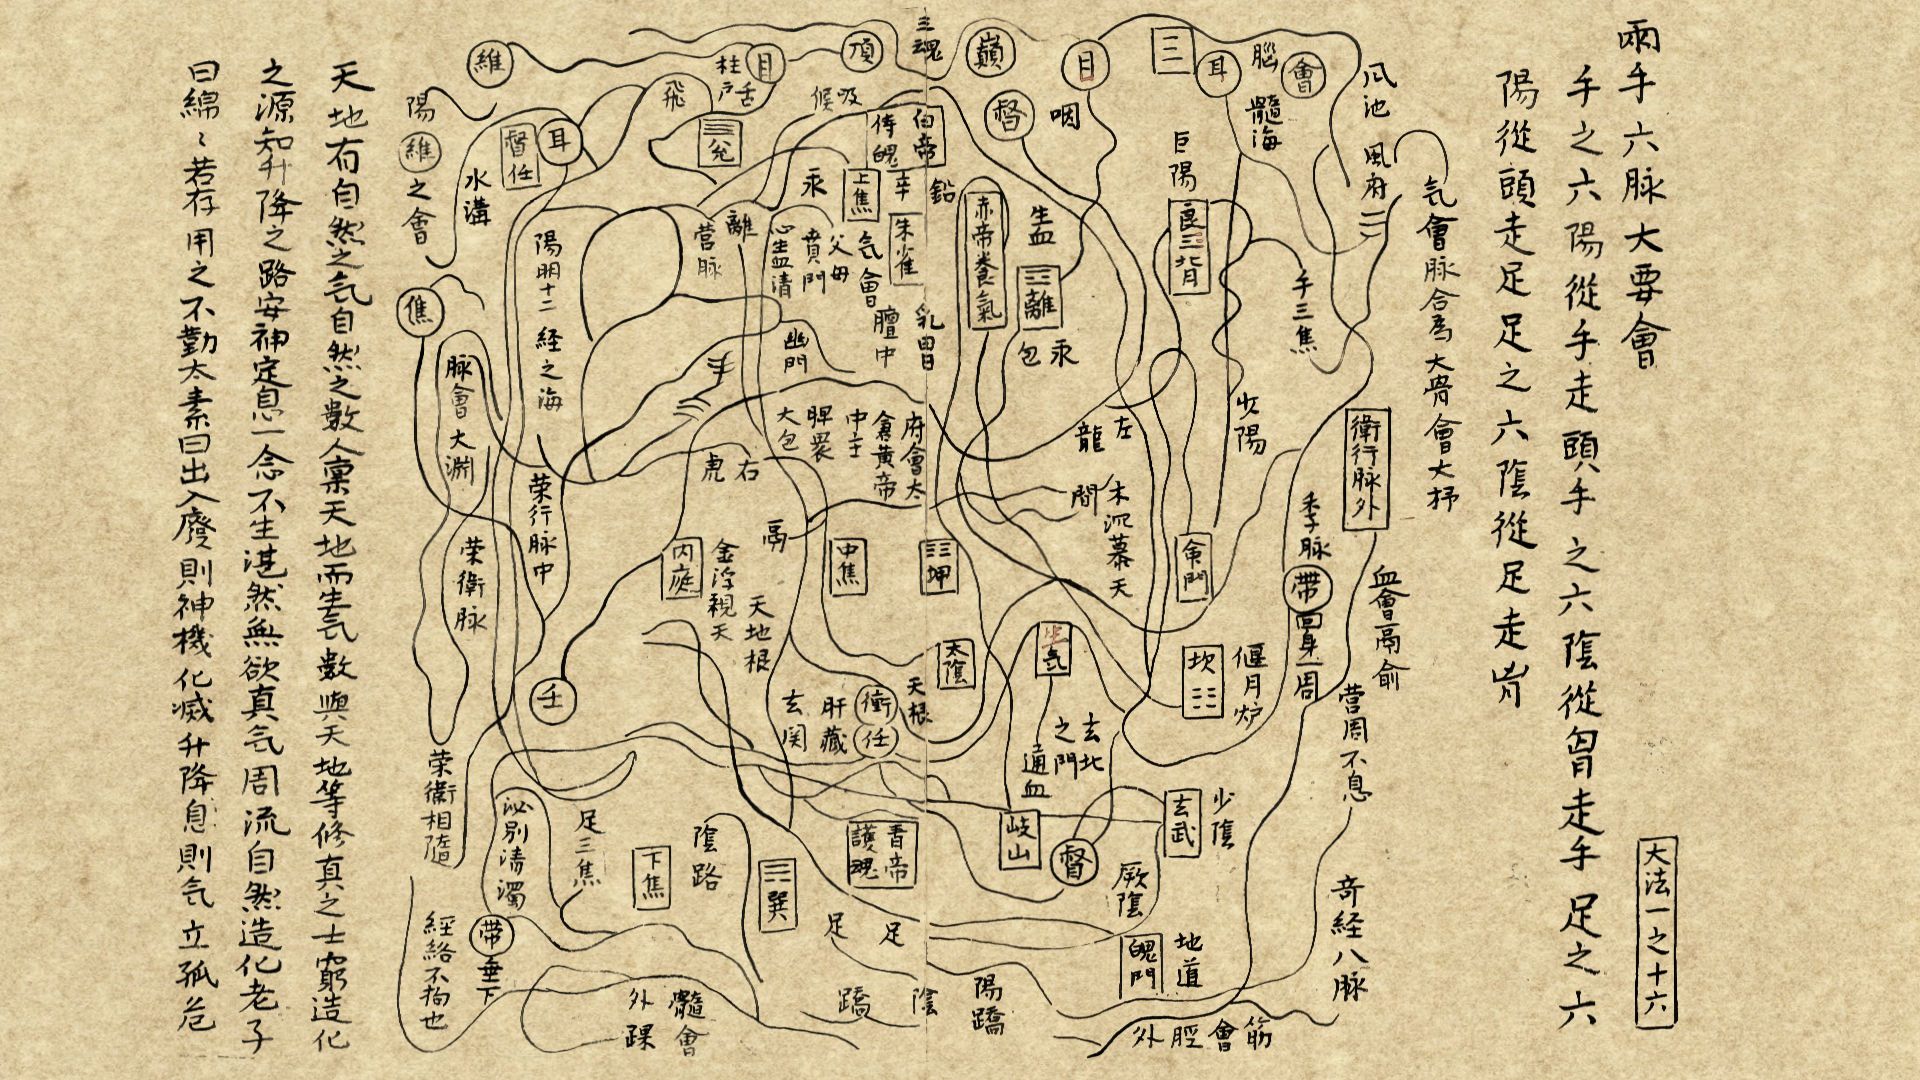 兩手六脉大要會
手之六陽從手走頭手之六陰從胷走手足之六
陽從頭走足足之六陰從足走走胷
大法一之十六
气會脉合爲大骨會大杼
風池
風府
會
腦
髓海
耳
三
目
咽
巔
督
三魂
頂
目
舌
柱
戶
維
陽
維
之會
飛
吸
候
兌
伯帝
侍魄
耳
督任
水溝
巨陽
艮
背
手三焦
生血
離
汞
包
赤帝養氣
鉛
朱雀
上焦
汞
气會膻中
父母
賁門
離
营脉
陽明十二
經之海
憔
脉會大淵
幽門
手
少陽
左
龍
府會太
倉黃帝
大包
右
虎
衛行脉外
季脉
帶
回身一周
血會鬲俞
营周不息
木沉慕天
命門
坤
中焦
鬲
内庭
金浮視天
天地根
荣行脉中
荣衛脉
坎
偃月炉
生氣
太陰
天根
衝
任
肝藏
玄関
壬
荣衛相隨
玄北
之門
通血
玄武
少陰
督
岐山
厥陰
青帝
護魂
巽
陰路
下焦
足三焦
泌別清濁
帶
垂下
經絡不拘也
足
足
蹻
陰
陽蹻
魄門
地道
奇経八脉
外脛會筋
髓會
外踝
天地有自然之气自然之數人稟天地而生气數與天地等修真之士窮造化
之源知升降之路安神定息一念不生湛然無欲真气周流自然造化老子
曰綿〻若存用之不勤太素曰出入廢則神機化滅升降息則气立孤危